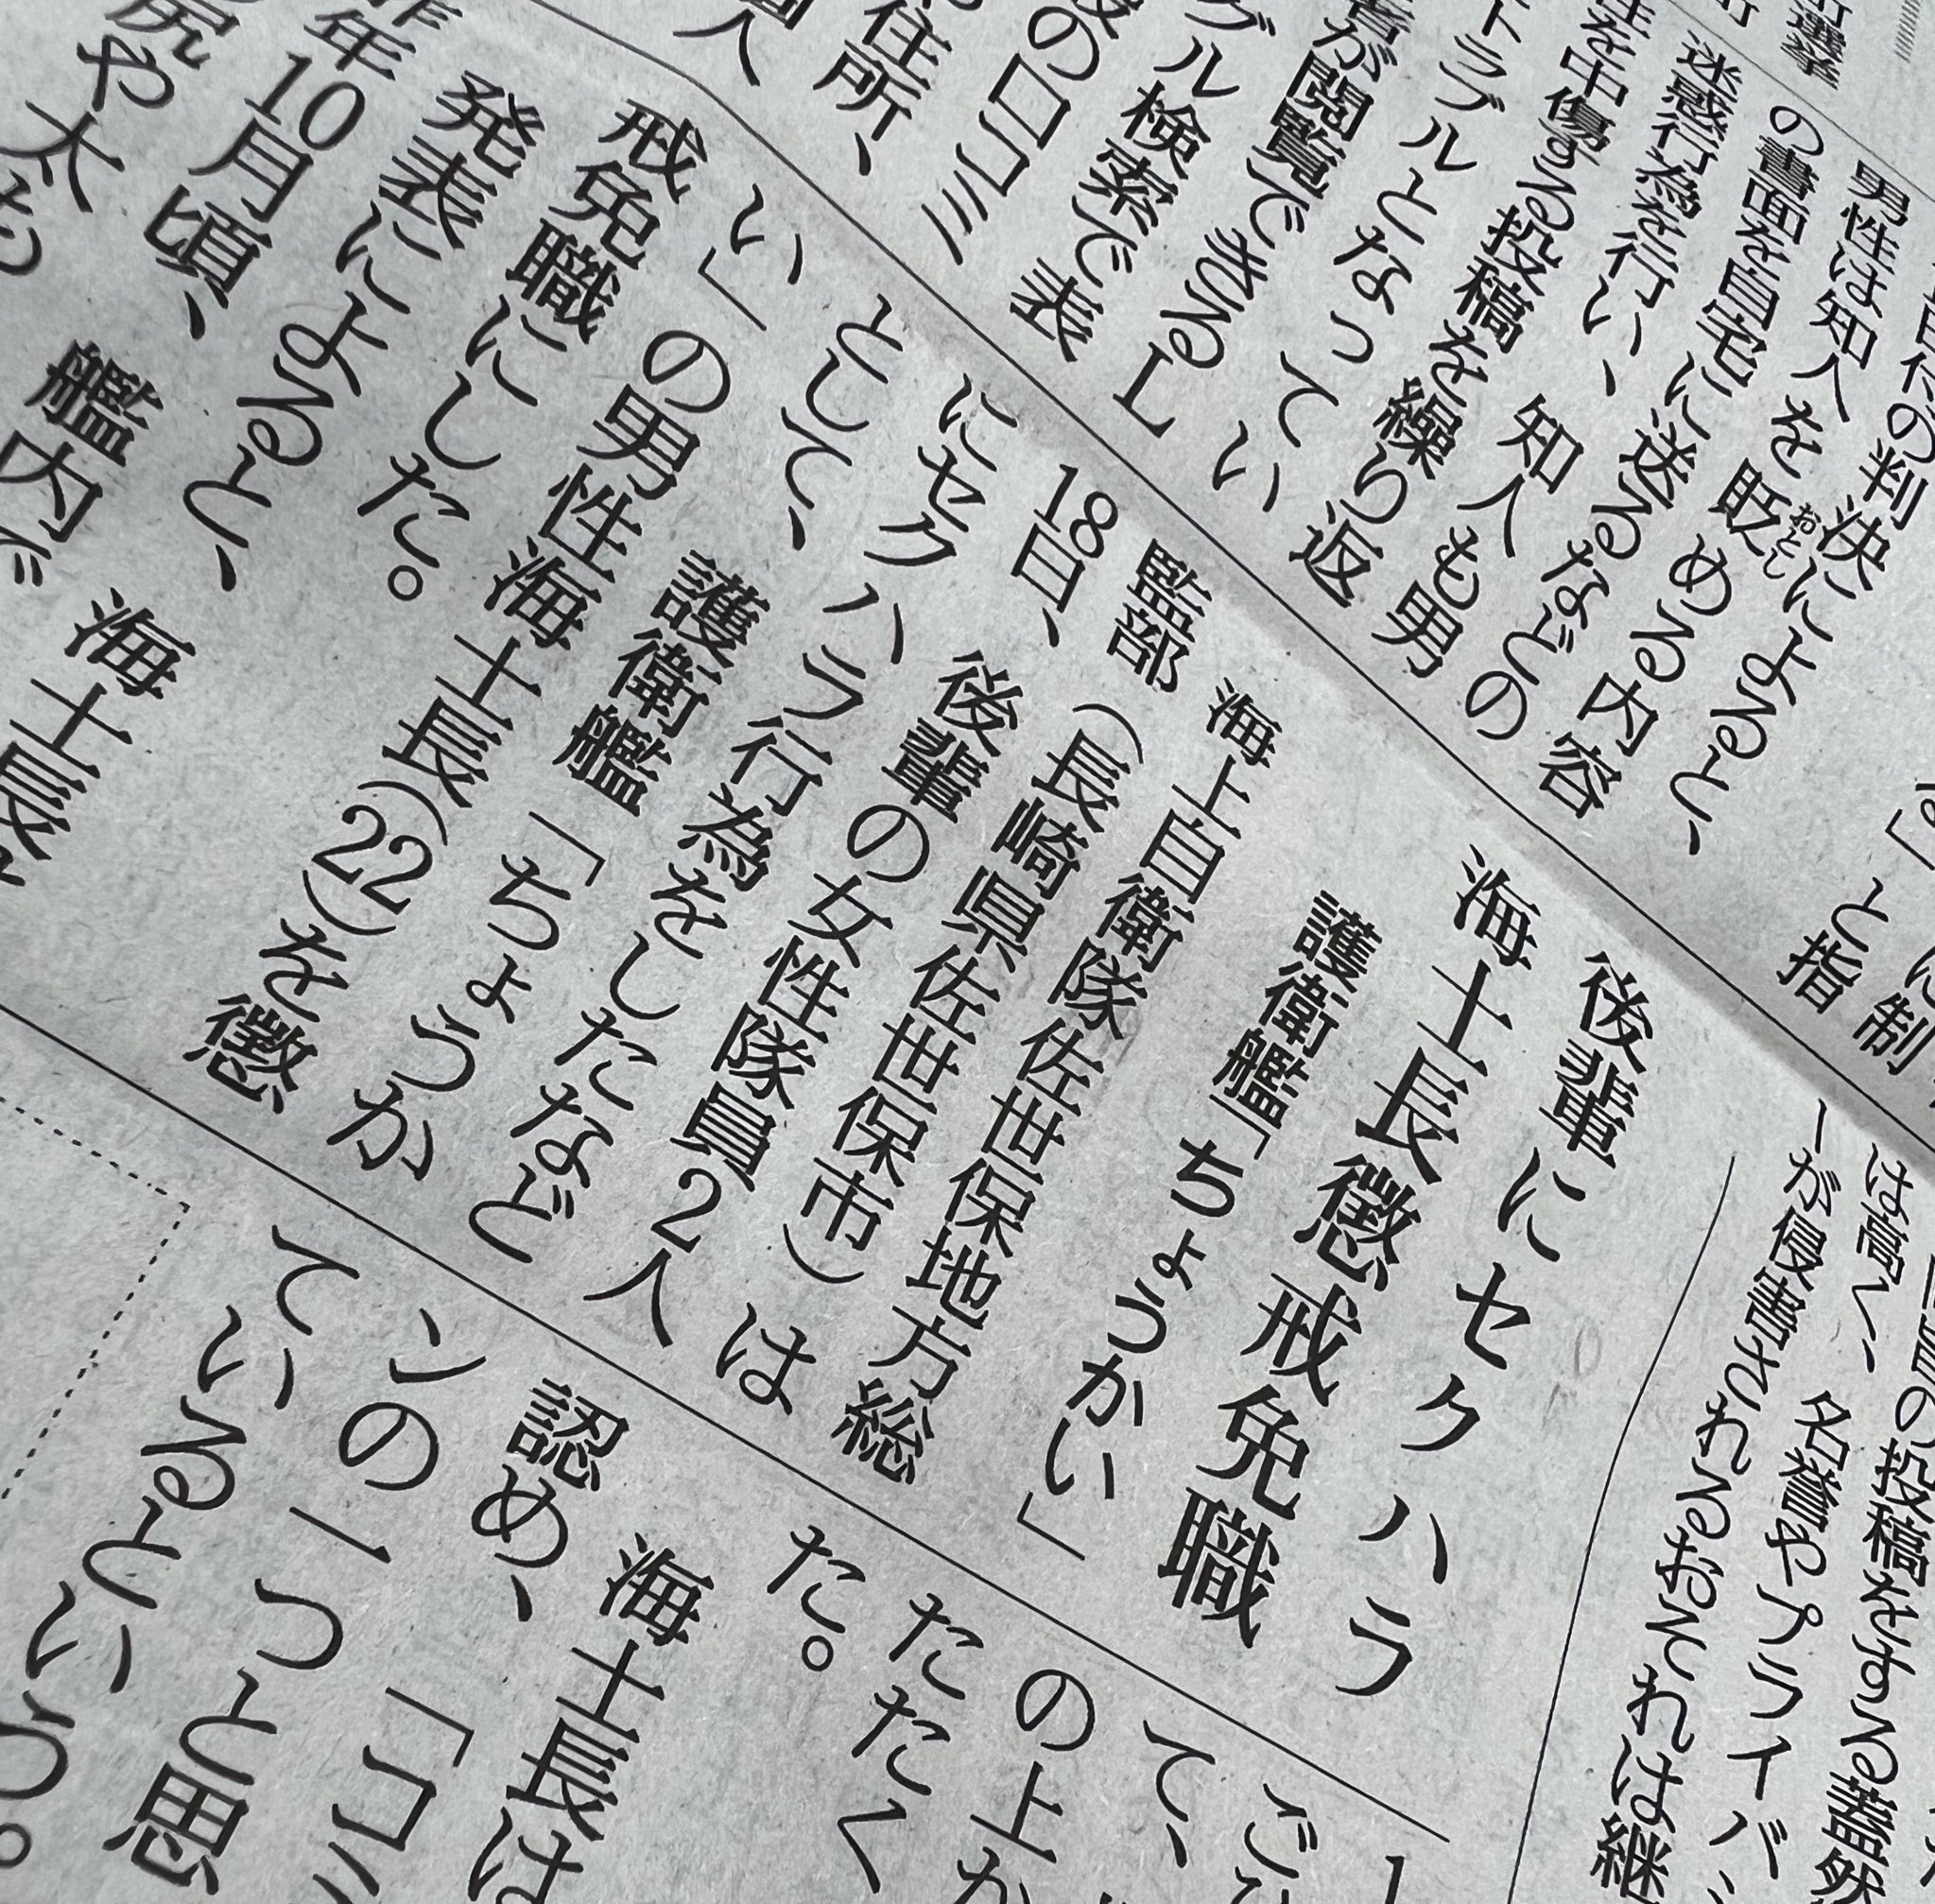 日付の判決によると、
男性は知人を貶める内容
おとし
の書面を自宅に送るなどの
迷惑行為を行い、知人も男
性を中傷する投稿を繰り返
トラブルとなってい
者が閲覧できるL
グル検索で表
の口コミ
住所、
人
」と指
制
の投稿をする蓋然
は高く、名誉やプライバシ
ーが侵害されるおそれは継
後輩にセクハラ
海士長懲戒免職
護衛艦「ちょうかい」
海上自衛隊佐世保地方総
監部(長崎県佐世保市)は
18日、後輩の女性隊員2人
にセクハラ行為をしたなど
として、護衛艦「ちょうか
い」の男性海士長(22)を懲
戒免職にした。
発表によると、海士長
昨年10月頃、艦内で
尻や太も
て、
の上か
たたく
た。
海士長は
認め、「コミ
ンの一つと思
ているという。